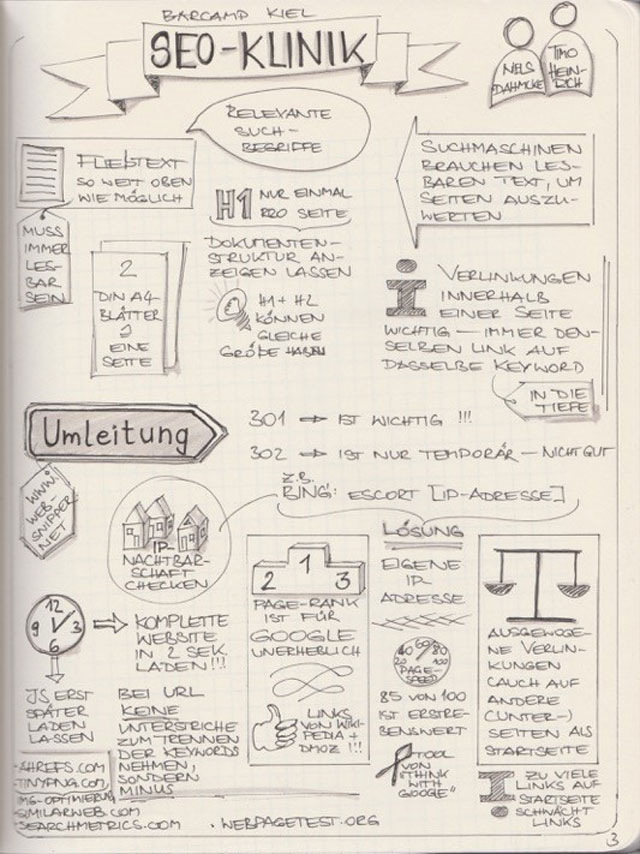 BARCAMP KIEL
SEO-KLINIK
NELS
DAHMCKE
TIMO
HEIN-
RICH
RELEVANTE
SUCH-
BEGRIFFE
FLIEßTEXT
SO WEIT OBEN
WIE MÖGLICH
MUSS
IMMER
LES-
BAR
SEIN
2
DIN A4-
BLÄTTER
EINE
SEITE
H1 NUR EINMAL
PRO SEITE
DOKUMENTEN-
STRUKTUR AN-
ZEIGEN LASSEN
H1 + H2
KÖNNEN
GLEICHE
GRÖßE HABEN
SUCHMASCHINEN
BRAUCHEN LES-
BAREN TEXT, UM
SEITEN AUSZU-
WERTEN
VERLINKUNGEN
INNERHALB
EINER SEITE
WICHTIG — IMMER DEN-
SELBEN LINK AUF
DASSELBE KEYWORD
IN DIE
TIEFE
Umleitung
301 ⇒ IST WICHTIG !!!
302 ⇒ IST NUR TEMPORÄR — NICHT GUT
WWW.
WEB-
SNIPPER.
NET
Z.B.
BING: ESCORT [IP-ADRESSE]
IP-
NACHTBAR-
SCHAFT
CHECKEN
12
9 3
6
KOMPLETTE
WEBSITE
IN 2 SEK.
LADEN!!!
JS ERST
SPÄTER
LADEN
LASSEN
BEI URL
KEINE
UNTERSTRICHE
ZUM TRENNEN
DER KEYWORDS
NEHMEN,
SONDERN
MINUS
2 1 3
PAGE-RANK
IST FÜR
GOOGLE
UNERHEBLICH
LINKS
VON WIKI-
PEDIA +
DMOZ !!!
LÖSUNG
EIGENE
IP-
ADRESSE
20 40 60 80 100
PAGE-
SPEED
85 VON 100
IST ERSTRE-
BENSWERT
TOOL
VON
"THINK
WITH
GOOGLE"
AUSGEWOGE-
NE VERLIN-
KUNGEN
(AUCH AUF
ANDERE
(UNTER-)
SEITEN ALS
STARTSEITE
ZU VIELE
LINKS AUF
STARTSEITE
SCHWÄCHT
LINKS
AHREFS.COM
TINYPNG.COM,
IMG-OPTIMIERUNG
SIMILARWEB.COM
SEARCHMETRICS.COM
· WEBPAGETEST.ORG
3